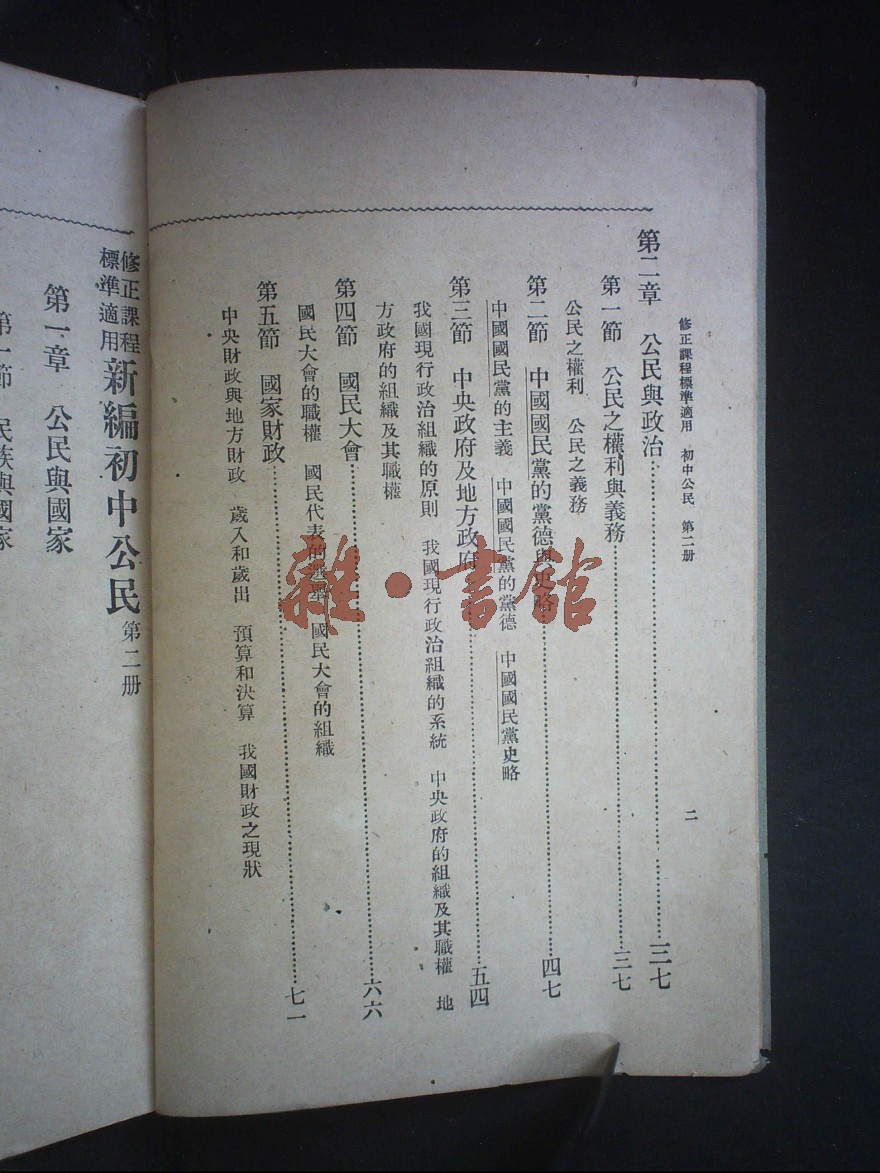 修正課程標準適用　初中公民　第二册
二
第二章　公民與政治……三七
第一節　公民之權利與義務……三七
公民之權利　公民之義務
第二節　中國國民黨的黨德與史略……四七
中國國民黨的主義　中國國民黨的黨德　中國國民黨史略
第三節　中央政府及地方政府……五四
我國現行政治組織的原則　我國現行政治組織的系統　中央政府的組織及其職權　地
方政府的組織及其職權
第四節　國民大會……六六
國民大會的職權　國民代表的選舉　國民大會的組織
第五節　國家財政……七一
中央財政與地方財政　歲入和歲出　預算和決算　我國財政之現狀
修正課程
標準適用
新編初中公民　第二册
第一章　公民與國家
第一節　民族與國家
雜·書館